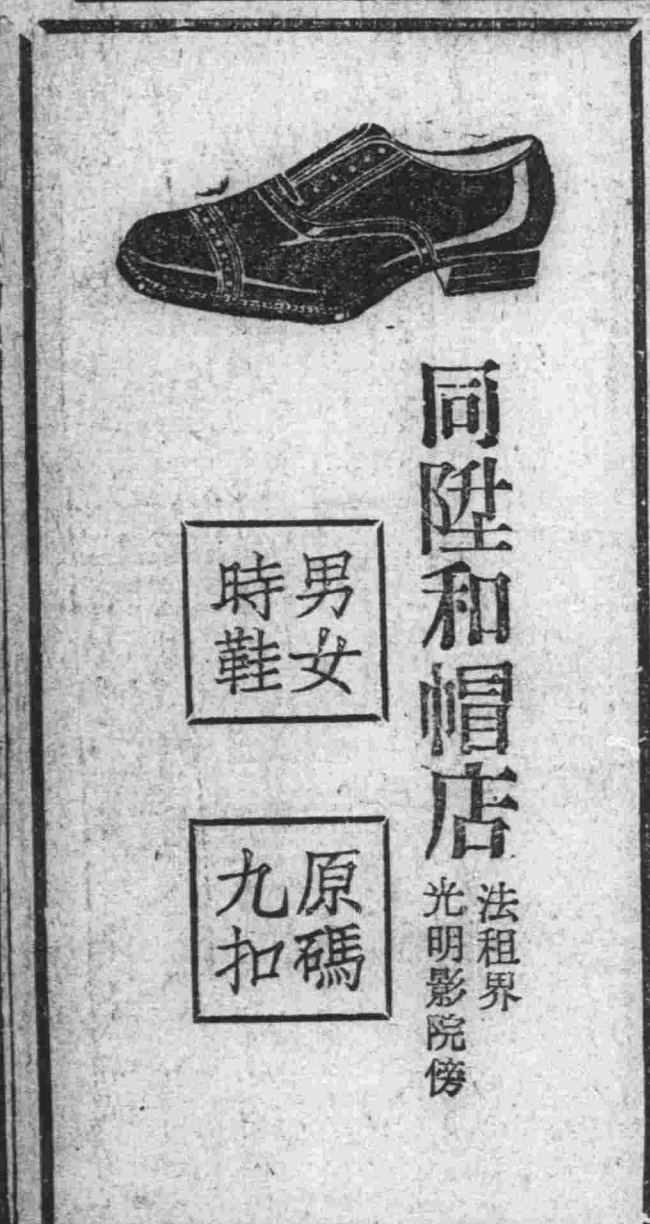 同陞和帽店
法租界
光明影院傍
男女
時鞋
原碼
九扣